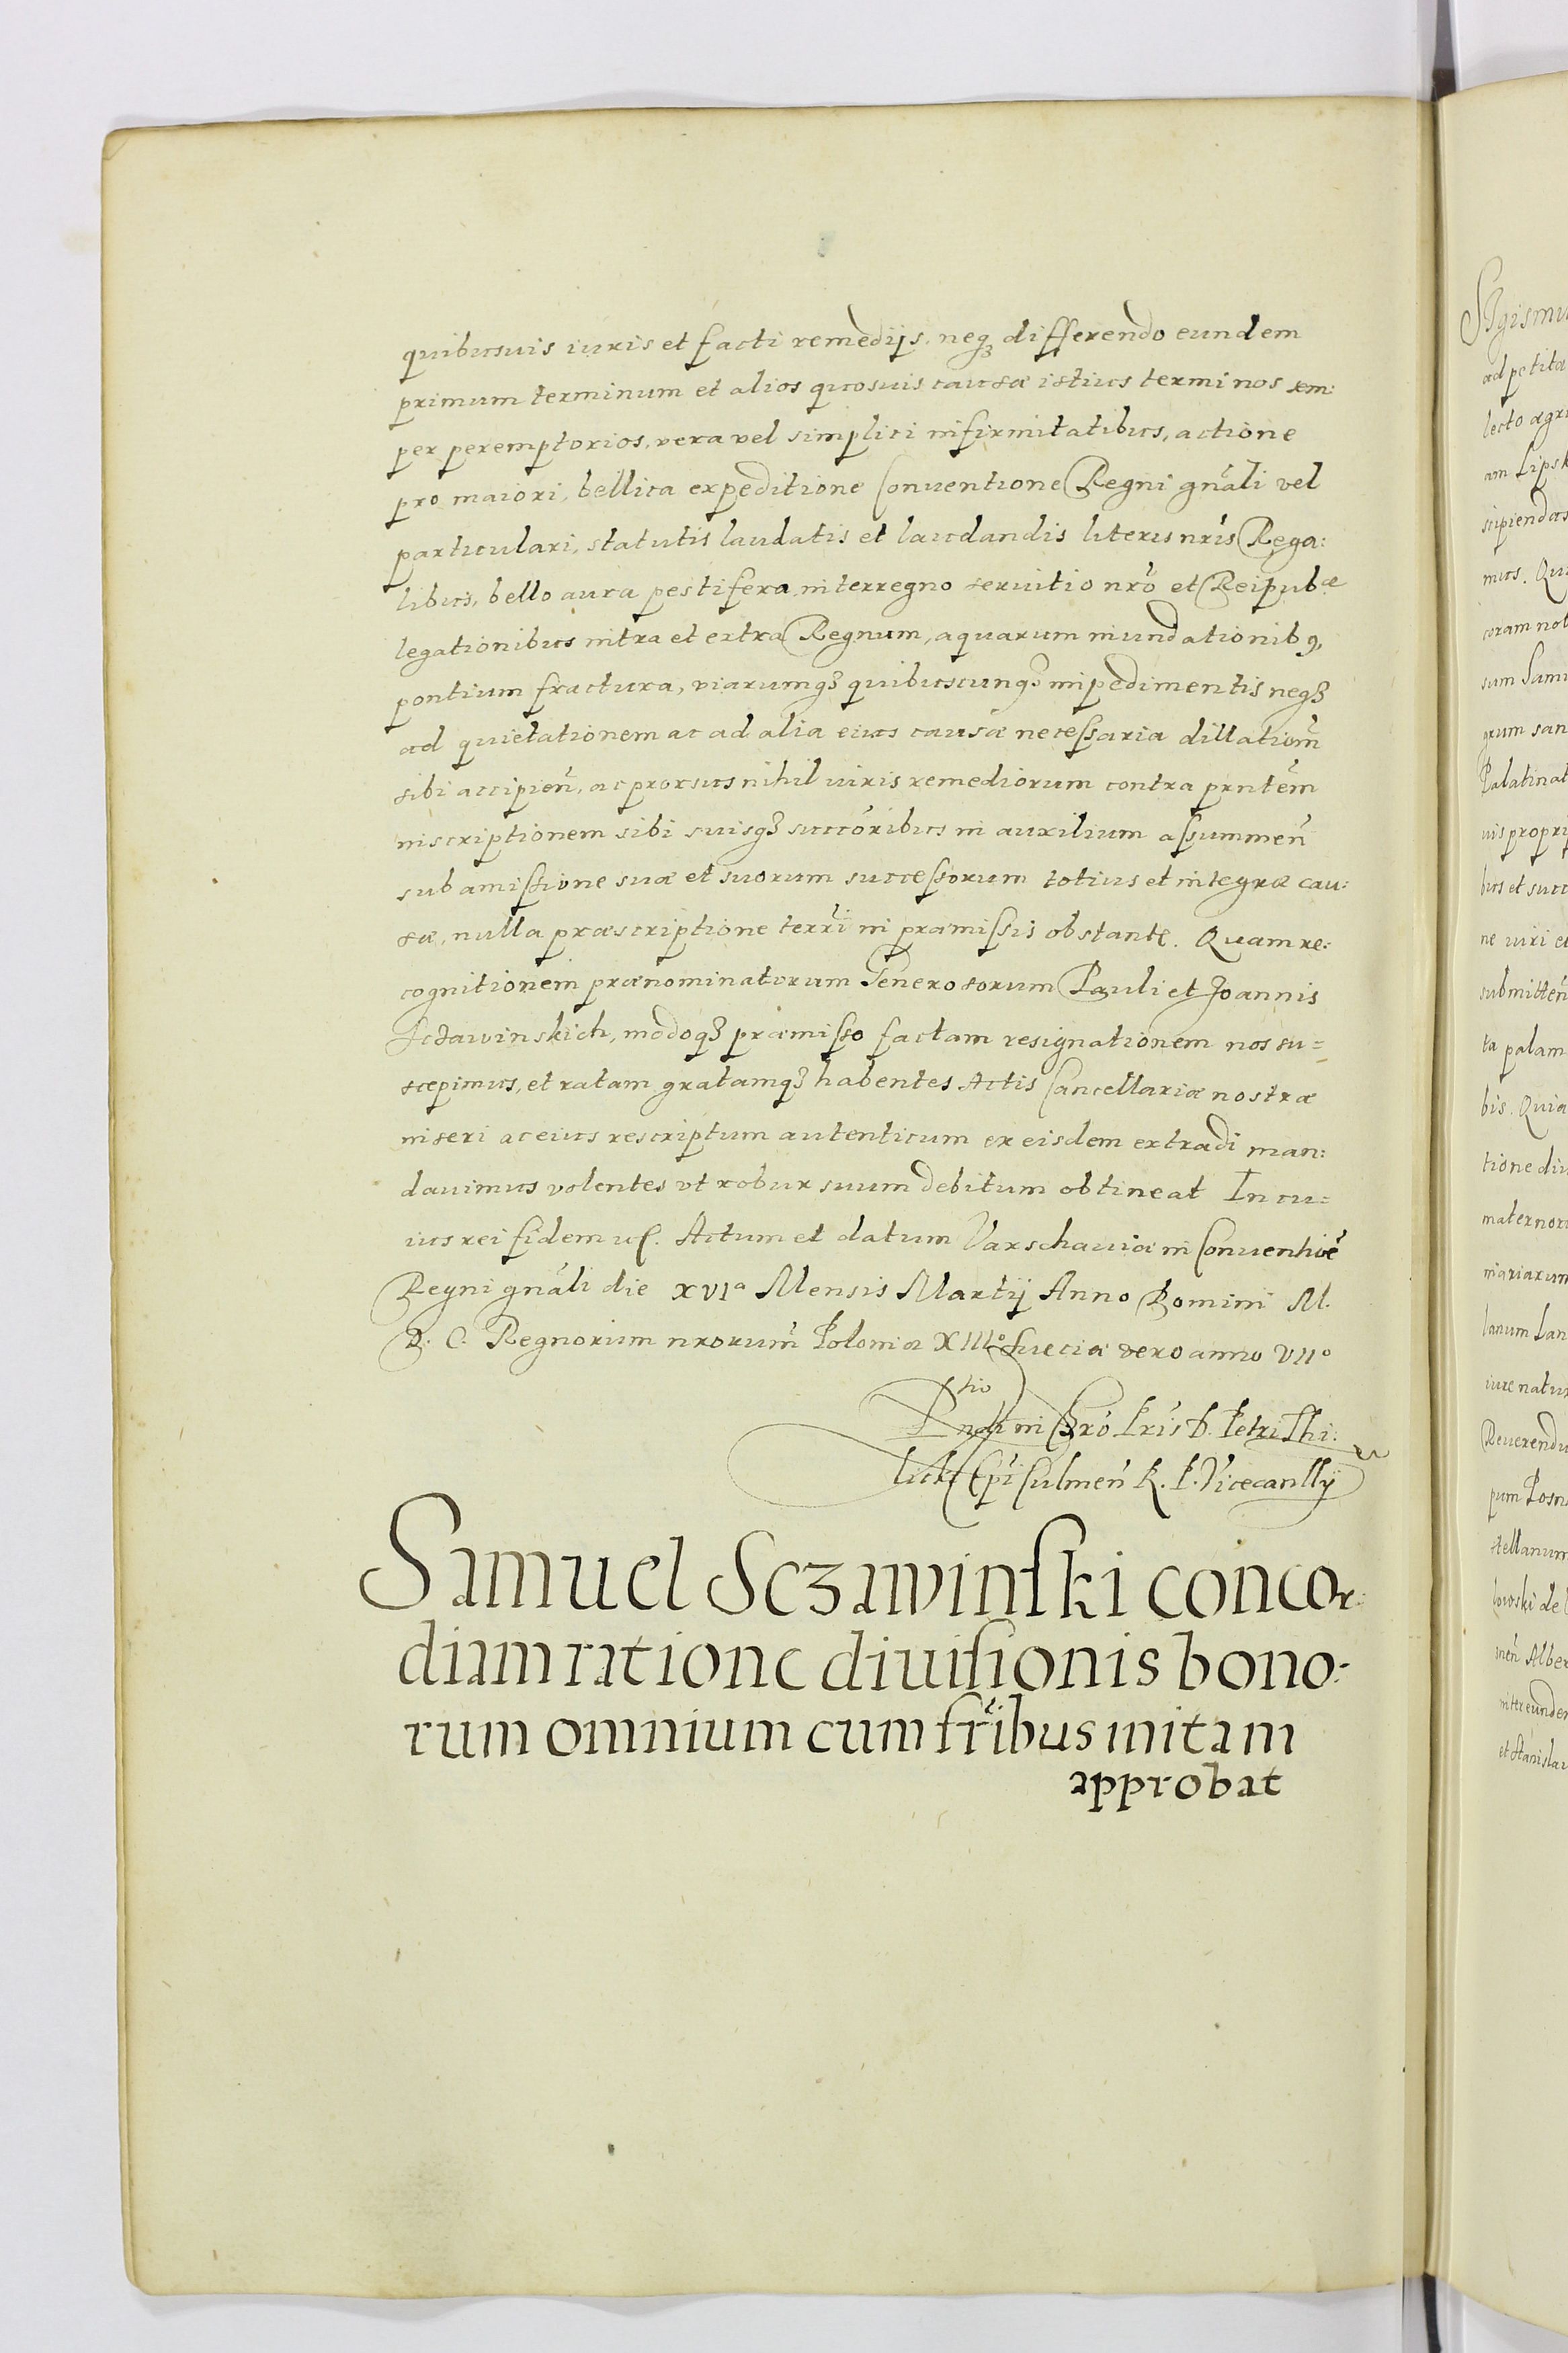 quibusuis iuris et facti remedijs, neqȝ differendo eundem
primum terminum et alios quosuis causæ istius terminos sem:
per peremptorios, vera vel simplici infirmitatibus, actione
pro maiori, bellica expeditione Conuentione Regni gnãli vel
particulari, statutis laudatis et laudandis literis nris Rega:
libus, bello aura pestifera, interregno seruitio nro et Reipubᵃᵉ
legationibus intra et extra Regnum, aquarum inundationibꝯ,
pontium fractura, viarumqȝ quibuscunqȝ impedimentis neqȝ
ad quietationem ac ad alia eius causæ necessaria dillatiom̃
sibi accipien̄, ac prorsus nihil iuris remediorum contra prntem̃
inscriptionem sibi suisqȝ succõribus in auxilium assummen̄
sub amissione suæ et suorum successorum totius et integræ cau:
sæ, nulla præscriptione terri in præmissis obstante. Quam re:
cognitionem prænominatorum Generosorum Pauli et Joannis
Sczawinskich, modoqȝ præmisso factam resignationem nos su=
scepimus, et ratam gratamqȝ habentes Actis Cancellariæ nostræ
inseri ac eius rescriptum autenticum ex eisdem extradi man:
dauimus volentes vt robur suum debitum obtineat In cu=
ius rei fidem &c. Actum et datum Varschauiæ in Conuentioẽ
Regni gnãli die XVIᵃ Mensis Martij Anno Domini M.
D. C. Regnorum nrorum̃ Poloniæ XIIIº Sueciæ vero anno VIIº
Ptris D. Petri Thi:
licki Epi Culmen̄ R. P. Vicecanllij
Samuel Sczawinski concor:
diam ratione diuisionis bono:
rum omnium cum fribus initam
approbat
Sigismu
ad petita
lecto agri
am Lipsk
cipiendas
mus. Qui
coram nob
sum Samu
grum san
Palatinat
uis propri
bus et succ
ne uiri et
submitten̄
ta palam
bis. Quia
tione diu
maternor
mariarum
lanum Lan
iure natur
Reuerendu
pum Posn
stellanum
kowski de
men̄ Alber
inter eunden
et Stanislau